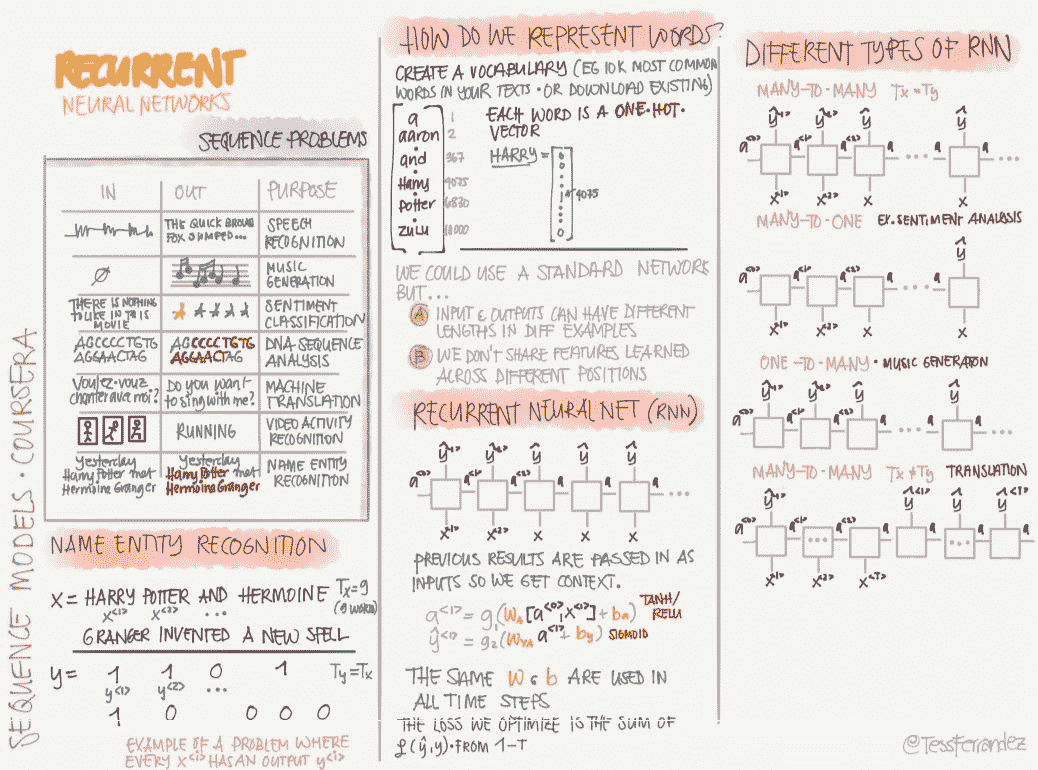 RECURRENT
NEURAL NETWORKS
SEQUENCE PROBLEMS
IN OUT PURPOSE
THE QUICK BROWN
FOX JUMPED...
SPEECH
RECOGNITION
∅
MUSIC
GENERATION
THERE IS NOTHING
TO LIKE IN THIS
MOVIE
SENTIMENT
CLASSIFICATION
AGCCCCTGTG
AGGAACTAG
AGCCCCTGTG
AGGAACTAG
DNA-SEQUENCE
ANALYSIS
Voulez-vouz
chanter avec moi?
Do you want
to sing with me?
MACHINE
TRANSLATION
RUNNING
VIDEO ACTIVITY
RECOGNITION
Yesterday
Harry Potter met
Hermoine Granger
Yesterday
Harry Potter met
Hermoine Granger
NAME ENTITY
RECOGNITION
SEQUENCE MODELS · COURSERA
NAME ENTITY RECOGNITION
X = HARRY POTTER AND HERMOINE Tx=9
x<1> x<2> ... (9 WORDS)
GRANGER INVENTED A NEW SPELL
y = 1 1 0 1 Ty=Tx
y<1> y<2> ...
1 0 0 0 0
EXAMPLE OF A PROBLEM WHERE
EVERY x<i> HAS AN OUTPUT y<i>
HOW DO WE REPRESENT WORDS?
CREATE A VOCABULARY (EG 10K MOST COMMON
WORDS IN YOUR TEXTS · OR DOWNLOAD EXISTING)
a 1
aaron 2
and 367
Harry 4075
Potter 6830
zulu 10000
EACH WORD IS A ONE·HOT·
VECTOR
HARRY =
0
0
1 4075
0
WE COULD USE A STANDARD NETWORK
BUT...
A INPUT & OUTPUTS CAN HAVE DIFFERENT
LENGTHS IN DIFF EXAMPLES
B WE DON'T SHARE FEATURES LEARNED
ACROSS DIFFERENT POSITIONS
RECURRENT NEURAL NET (RNN)
ŷ<1> ŷ<2> ŷ ŷ ŷ
a<0> a<1> a<2> a a ...
x<1> x<2> x x x
PREVIOUS RESULTS ARE PASSED IN AS
INPUTS SO WE GET CONTEXT.
a<1> = g₁(Wa[a<0>,x<1>] + ba) TANH/
RELU
ŷ<1> = g₂(Wya a<1> + by) SIGMOID
THE SAME W & b ARE USED IN
ALL TIME STEPS
THE LOSS WE OPTIMIZE IS THE SUM OF
ℒ(ŷ,y)·FROM 1-T
DIFFERENT TYPES OF RNN
MANY-TO-MANY Tx = Ty
ŷ<1> ŷ<2> ŷ ŷ
a<0> a<1> a<2> a ... a ...
x<1> x<2> x x
MANY-TO-ONE EX. SENTIMENT ANALASIS
ŷ
a<0> a<1> a<2> a ... a
x<1> x<2> x x
ONE-TO-MANY · MUSIC GENERATION
ŷ<1> ŷ<2> ŷ ŷ
a<0> a<1> a<2> a ... a ...
MANY-TO-MANY Tx ≠ Ty TRANSLATION
ŷ<1> ŷ<1> ŷ ŷ<T>
a<0> a<1> ... a<2> a a ... a
x<1> x<2> x<T>
@TessFerrandez